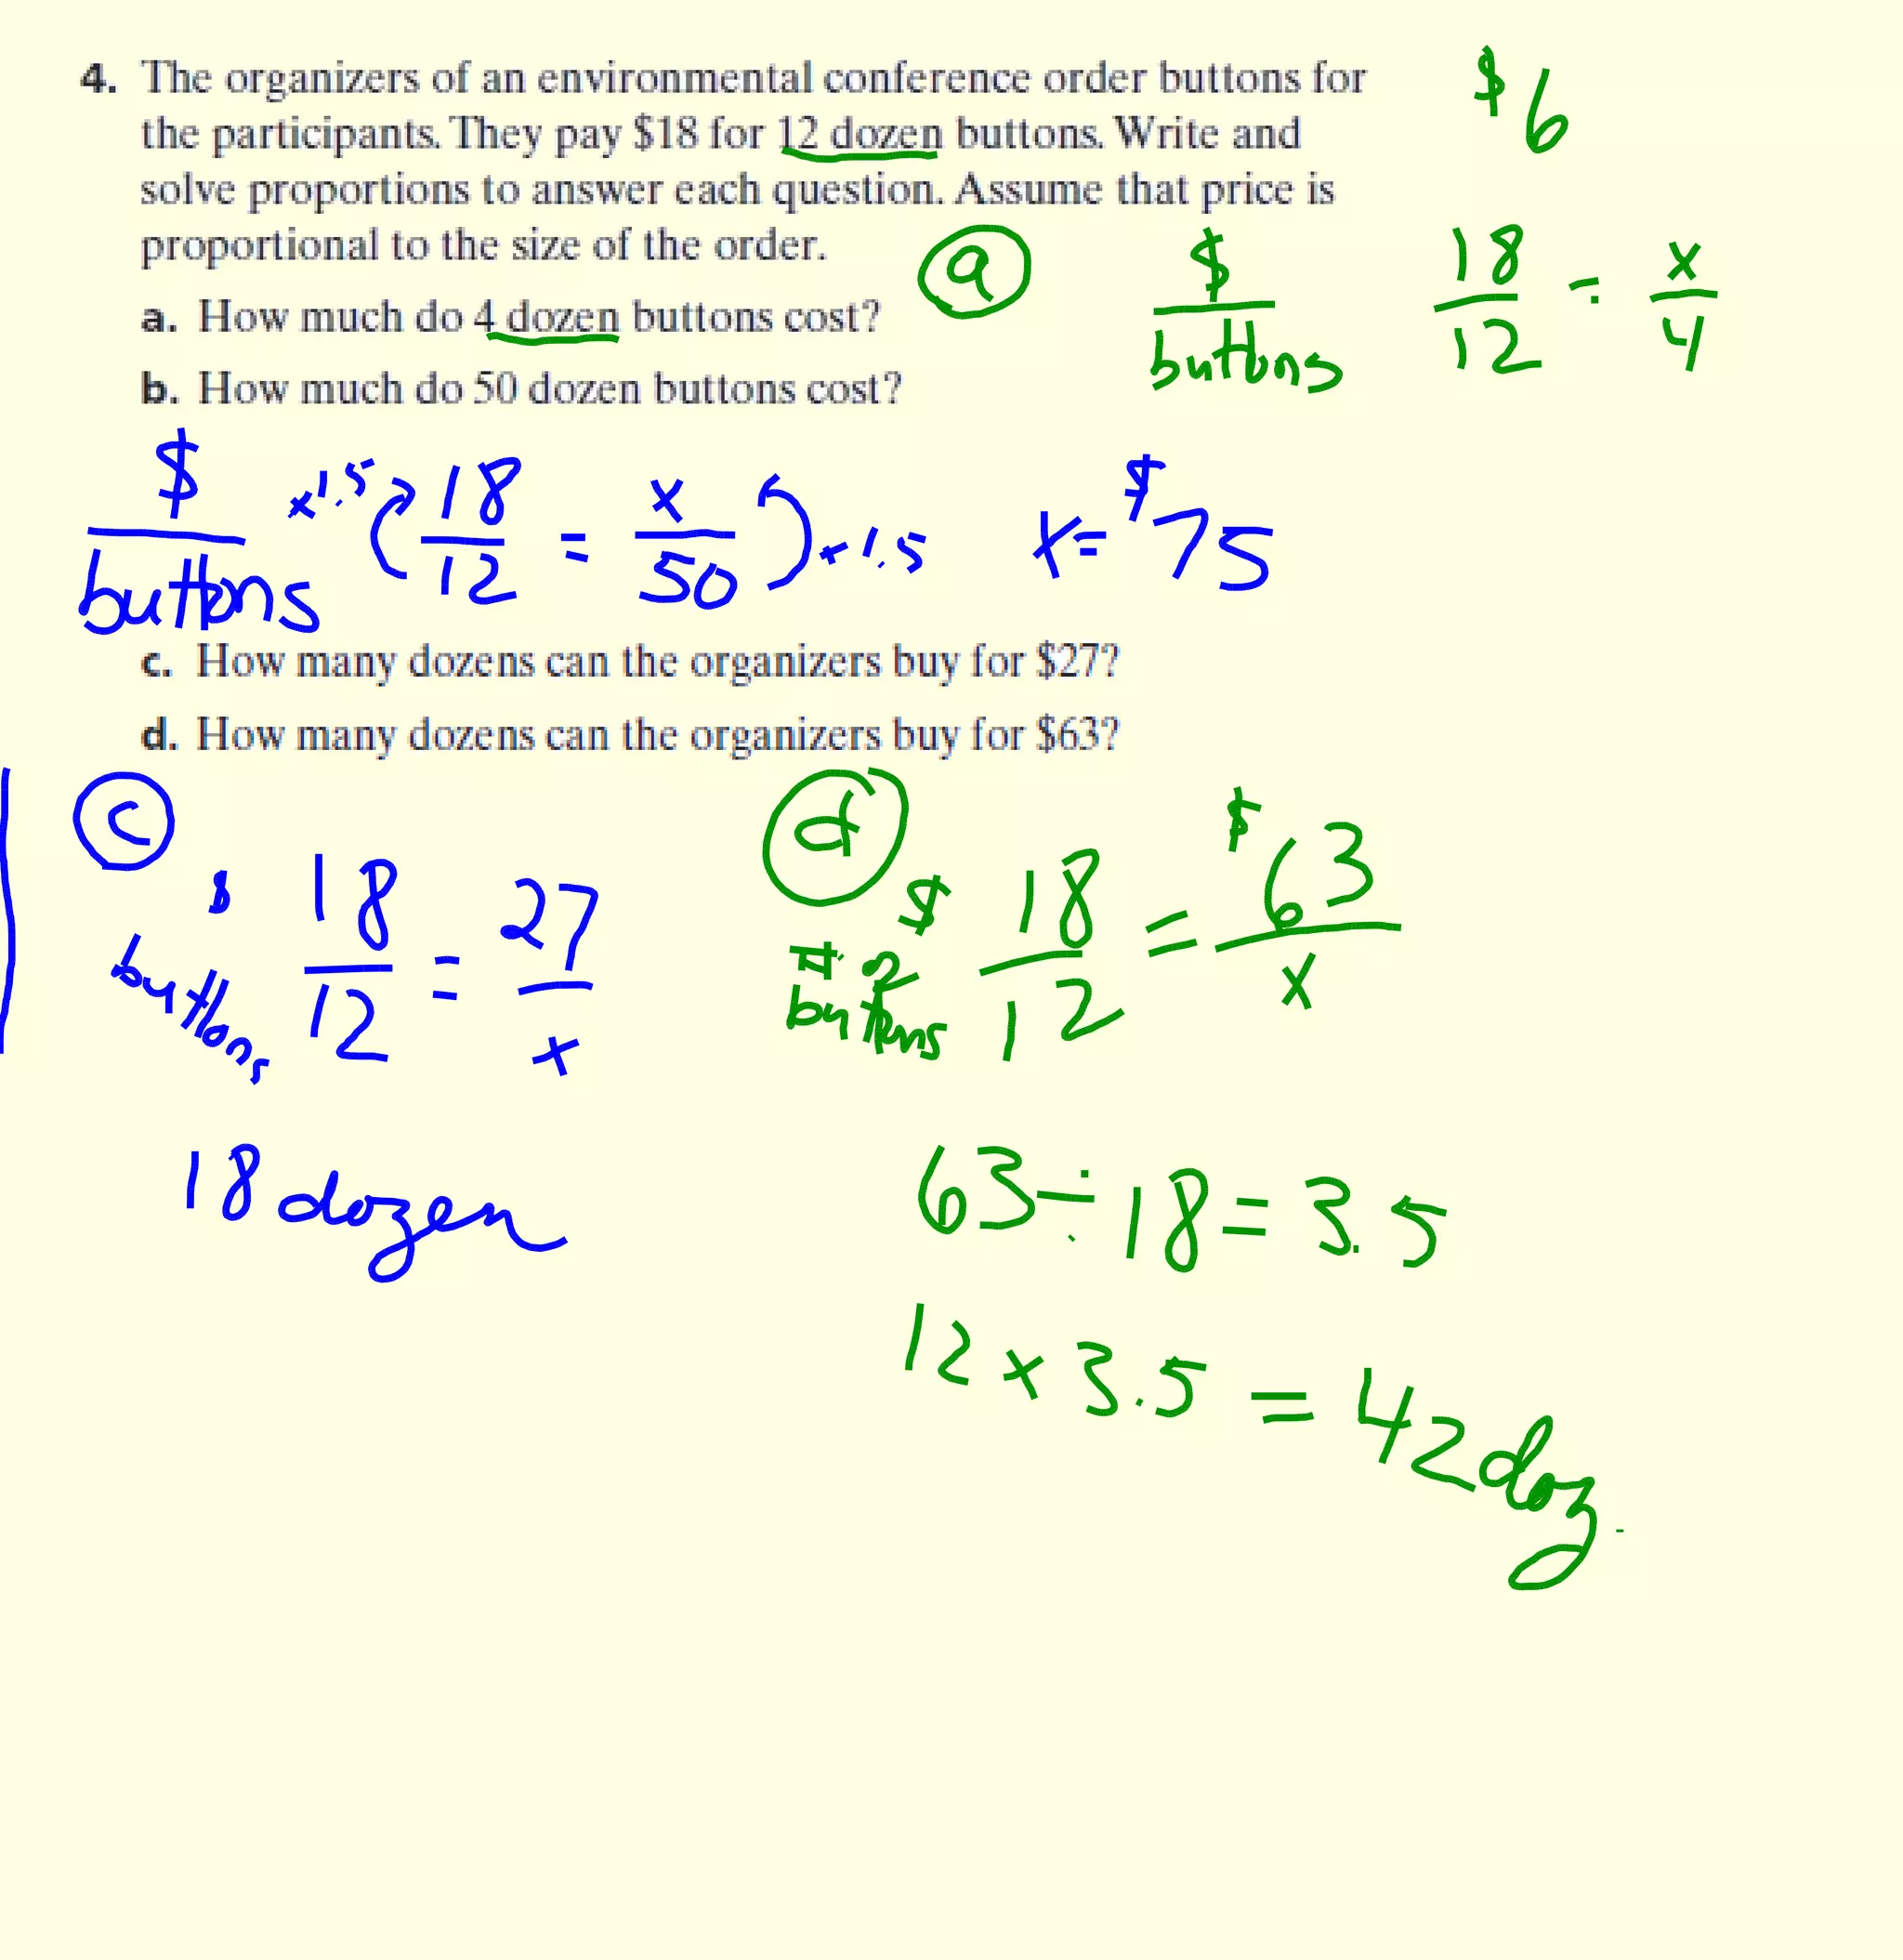 4. The organizers of an environmental conference order buttons for
the participants. They pay $18 for 12 dozen buttons. Write and
solve proportions to answer each question. Assume that price is
proportional to the size of the order.
$6
a. How much do 4 dozen buttons cost?
b. How much do 50 dozen buttons cost?
a $/buttons 18/12 = x/4
$/buttons x1.5 18/12 = x/50 x1.5 x = $75
c. How many dozens can the organizers buy for $27?
d. How many dozens can the organizers buy for $63?
c
$ 18/12 = 27/x
buttons
18 dozen
d
$ 18/12 = $63/x
# of
buttons
63 ÷ 18 = 3.5
12 x 3.5 = 42 doz.